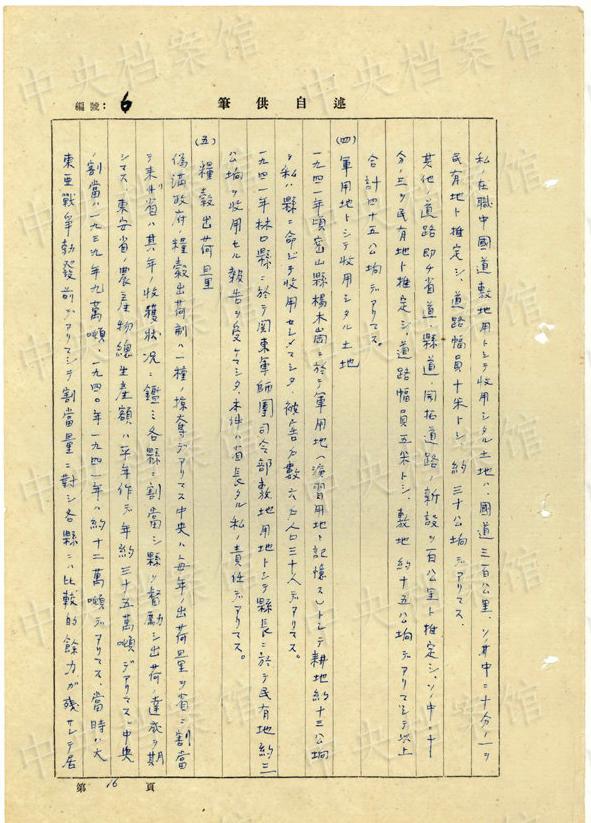 編號：6
述自供筆
私ノ在職中國道敷地用トシテ收用シタル土地ハ、國道三百公里、ソノ其中二十分ノ一ヲ
民有地ト推定シ、道路幅員十米トシ、約三十公垧デアリマス、
其他ノ道路即チ省道、縣道、開拓道路ノ新設ヲ一百公里ト推定シ、ソノ中、十
分ノ三ヲ民有地ト推定シ、道路幅員五米トシ、敷地約十五公垧デアリマシテ以上
合計四十五公垧デアリマス。
(四) 軍用地トシテ收用シタル土地
一九四一年頃密山縣楊木崗ニ於テ軍用地(演習用地ト記憶ス)トシテ耕地約十三公垧
ヲ私ハ縣ニ命ジテ收用セシメマシタ、被害戶數六戶人口三十人デアリマス。
一九四一年林口縣ニ於テ関東軍師團司令部敷地用地トシテ縣長ニ於テ民有地約三
公垧ヲ收用セル報告ヲ受ケマシタ、本件ハ省長タル私ノ責任デアリマス。
(五) 糧穀出荷量
偽滿政府ノ糧穀出荷制ハ一種ノ掠奪デアリマス中央ハ毎年ノ出荷量ヲ省ニ割當
テ来リ省ハ其年ノ收獲狀況ニ鑑ミ各縣ニ割當シ縣ヲ督勵シ出荷ノ達成ヲ期
シマス、東安省ノ農産物總生産額ハ平年作デ年約三十五萬噸デアリマス、中央
ノ割當ハ一九三九年九萬噸、一九四〇年一九四一年ハ約十二萬噸デアリマス、當時ハ大
東亜戰爭勃發前デアリマシテ割當量ニ對シ各縣ニハ比較的餘力ガ殘サレテ居
第 16 頁
中央档案馆